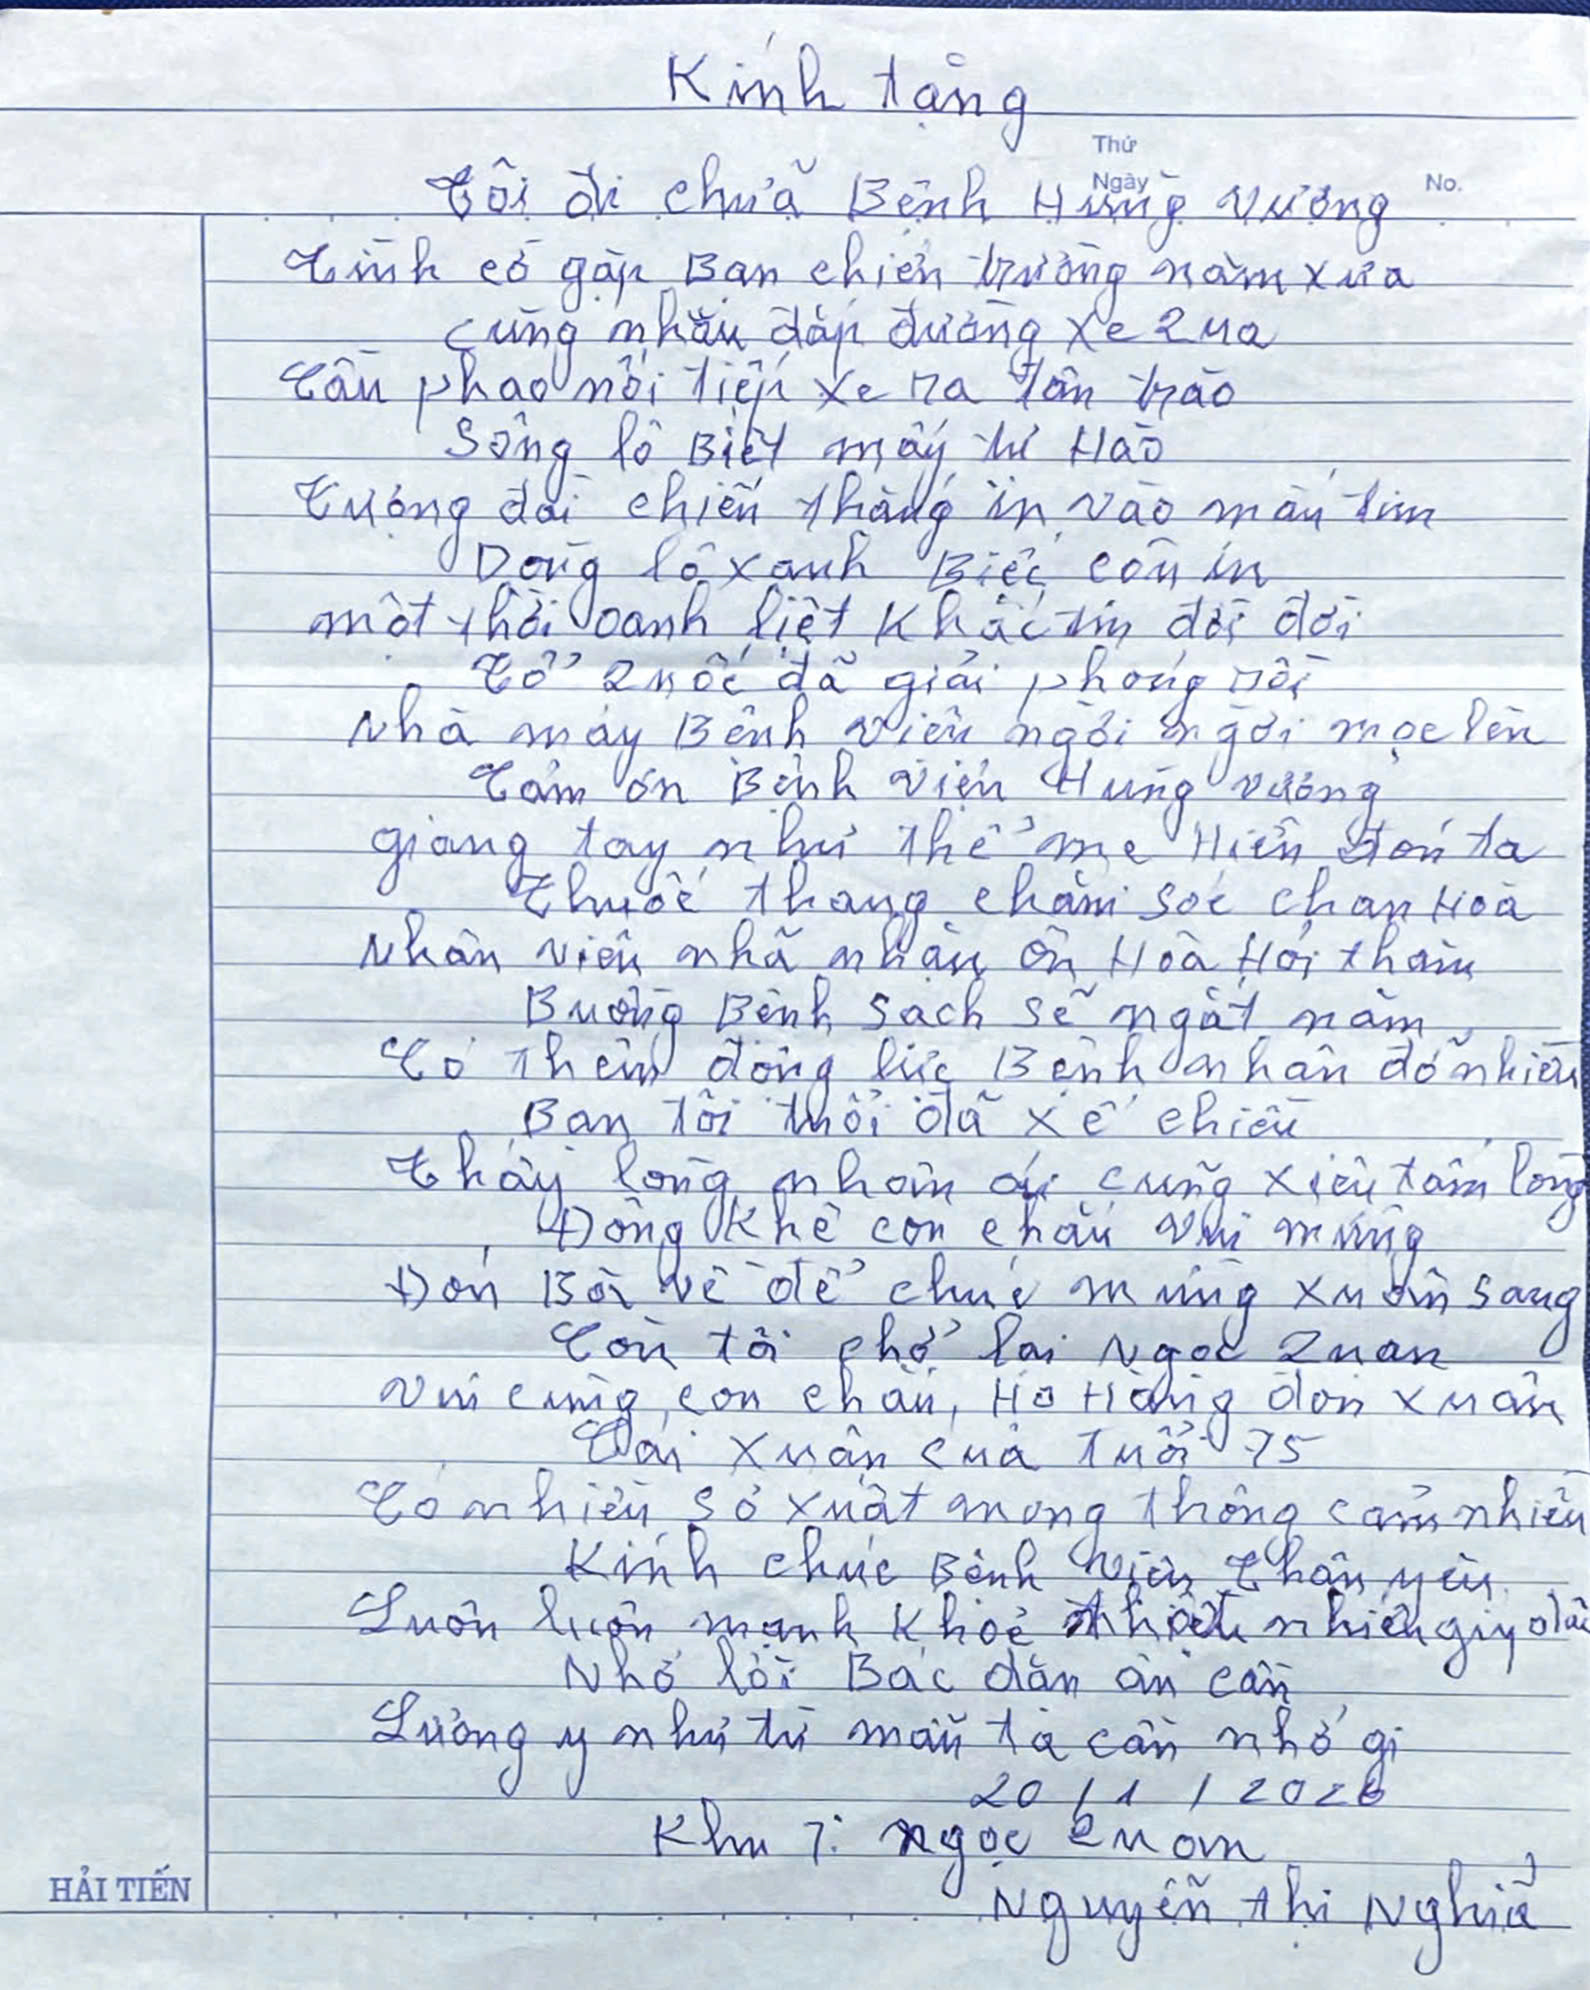 Kính tặng
Thứ
Ngày
No.
Tôi đi chữa Bệnh Hùng Vương
Tình cờ gặp Bạn chiến trường năm xưa
Cùng nhau đắp đường xe qua
Cầu phao nối tiếp xe ra tân trào
Sông lô Biết mấy tự Hào
Tượng đài chiến thắng in vào mãi tim
Dòng lô xanh Biếc còn in
một thời oanh liệt Khắc tim đời đời
Tổ Quốc đã giải phóng rồi
Nhà máy Bệnh viện ngời ngời mọc lên
Cảm ơn Bệnh viện Hùng vương
giang tay như thể mẹ Hiền đón ta
Thuốc thang chăm sóc chan Hoà
Nhân viên nhã nhặn ôn Hoà Hỏi thăm
Buồng Bệnh sạch sẽ ngăt năm
Có thêm động lực Bệnh nhân đỡ nhiều
Bạn tôi tuổi đã xế chiều
Thấy lòng nhân ái cũng xiêu tấm lòng
Đông Khê con cháu vui mừng
Đón Bà về để chúc mừng xuân sang
Còn tôi chở lại Ngọc Quan
Vui cùng con cháu, Họ Hàng đón xuân
Cái xuân của tuổi 75
Có nhiều sơ xuất mong thông cảm nhiều
Kính chúc Bệnh viện thân yêu
Luôn luôn mạnh Khoẻ nhiều
Nhớ lời Bác dặn ân cần
Lương y như từ mẫu ta cần nhớ gi
20/1/2026
Khu 7: Ngọc Quan
Nguyễn thị Nghĩa
HẢI TIẾN